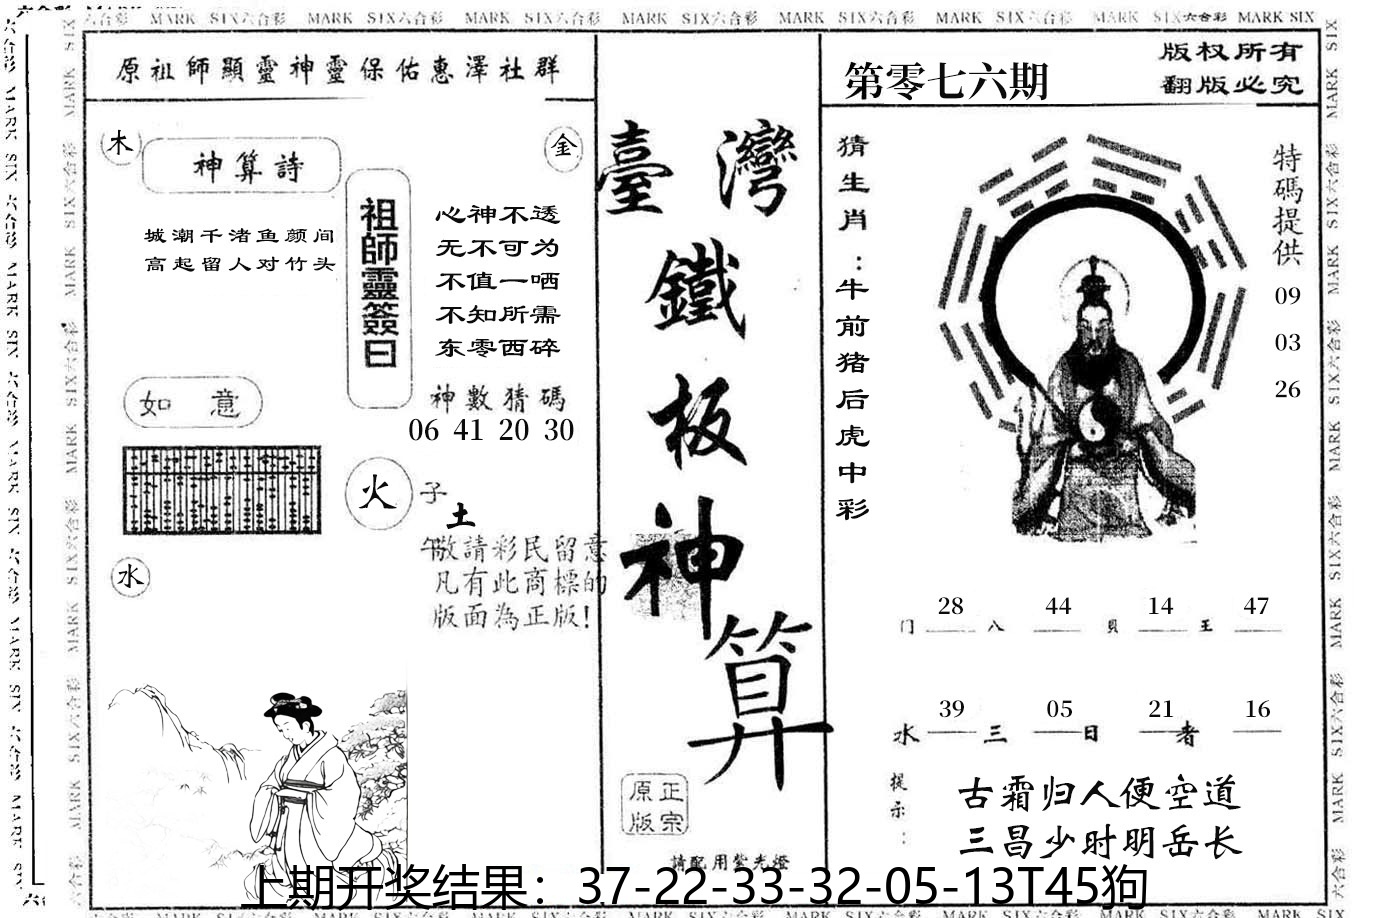 MARK SIX六合彩 MARK SIX六合彩 MARK SIX六合彩 MARK SIX六合彩 MARK SIX六合彩 MARK SIX六合彩 MARK SIX六合彩 MARK SIX
原祖師顯靈神靈保佑惠澤社群
木
神算詩
金
城潮千渚鱼颜间
高起留人对竹头
祖師靈簽曰
心神不透
无不可为
不值一哂
不知所需
东零西碎
神數猜碼
06 41 20 30
如意
火
子
土
午
敬請彩民留意
凡有此商標的
版面為正版!
水
臺灣
鐵板神算
正宗
原版
請配用紫光燈
第零七六期
版权所有
翻版必究
猜生肖:牛前猪后虎中彩
特碼提供
09
03
26
门 28 八 44 貝 14 王 47
水 39 三 05 日 21 者 16
提示:
古霜归人便空道
三昌少时明岳长
上期开奖结果：37-22-33-32-05-13T45狗